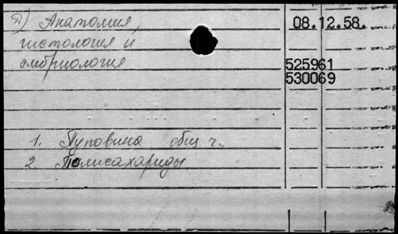 Д) Анатомия,
гистология и
эмбриология
08.12.58.
525961
530069
1. Пуповина общ ч.
2 Полисахариды